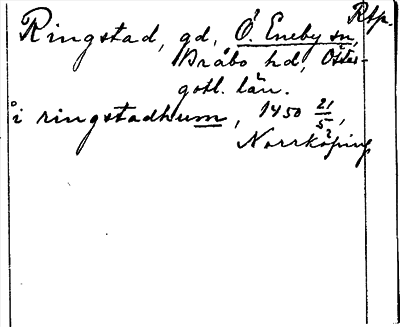 Rtp.
Ringstad, gd, Ö. Eneby sn,
Bråbo hd, Öster-
götl. län.
i ringstadhum, 1450 21/5,
Norrköping